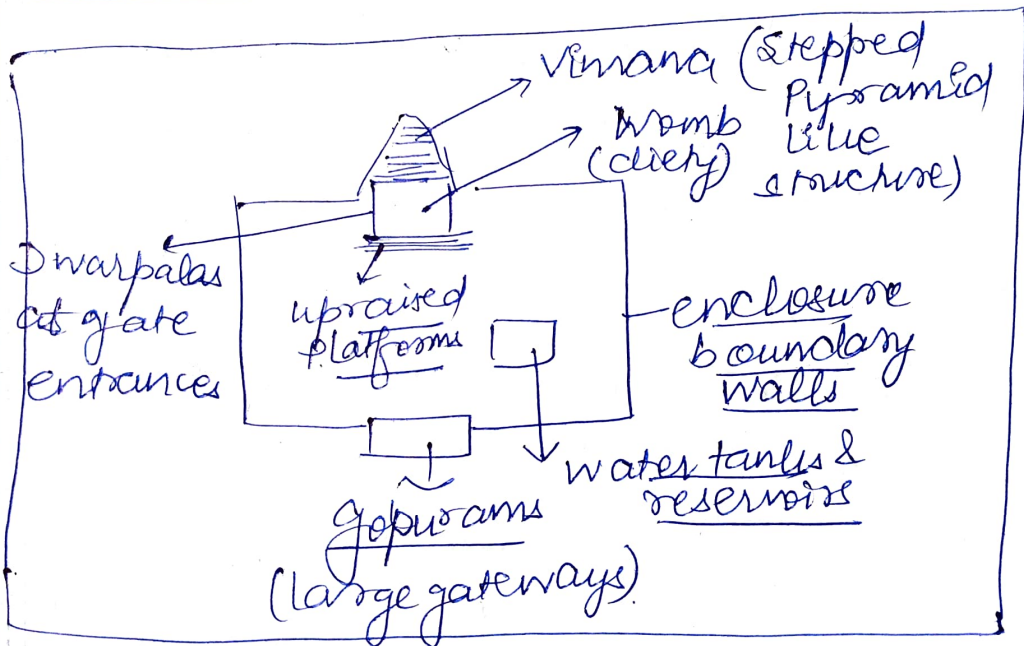 Vimana (Stepped
Pyramid
like
structure)
womb
(diety)
Dwarpalas
at gate
entrances
upraised
platforms
enclosure
boundary
walls
water tanks &
reservoirs
Gopurams
(large gateways)